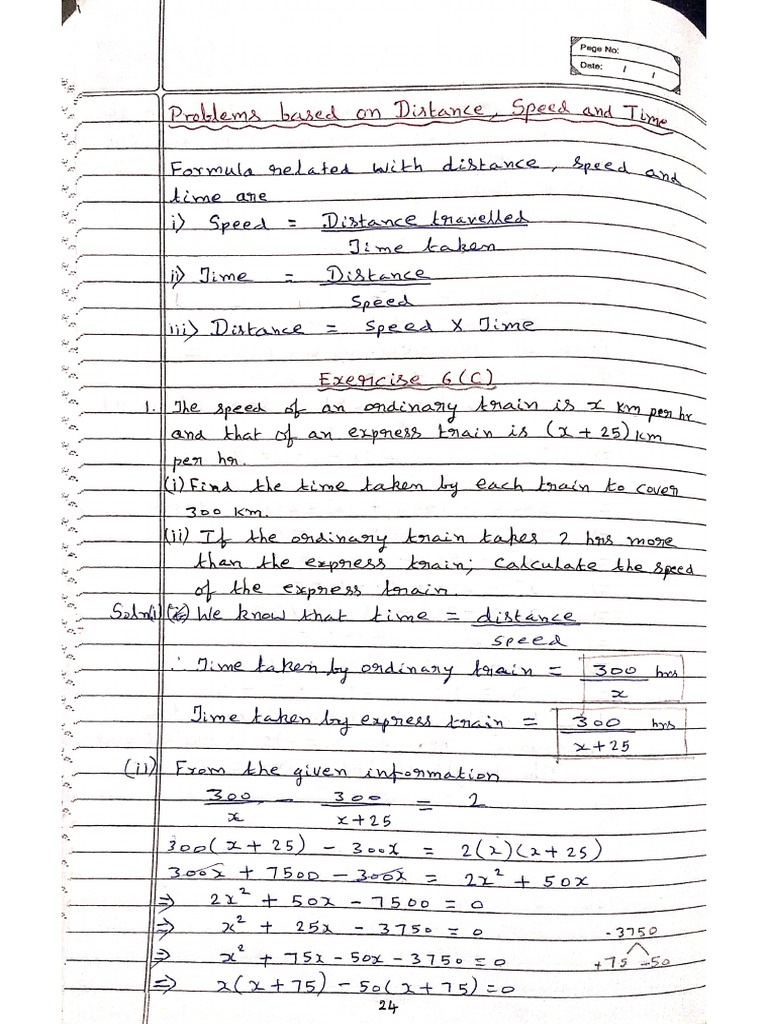 Page No:
Date: / /
Problems based on Distance, Speed and Time
Formula related with distance, speed and
time are
i) Speed = Distance travelled
Time taken
ii) Time = Distance
Speed
iii) Distance = Speed X Time
Exercise 6(C)
1. The speed of an ordinary train is x km per hr
and that of an express train is (x + 25) km
per hr.
(i) Find the time taken by each train to cover
300 km.
(ii) If the ordinary train takes 2 hrs more
than the express train; calculate the speed
of the express train.
Soln(i) We know that time = distance
speed
∴ Time taken by ordinary train = 300 hrs
x
Time taken by express train = 300 hrs
x+25
(ii) From the given information
300 - 300 = 2
x x+25
300(x + 25) - 300x = 2(x)(x + 25)
300x + 7500 - 300x = 2x² + 50x
⇒ 2x² + 50x - 7500 = 0
⇒ x² + 25x - 3750 = 0 -3750
⇒ x² + 75x - 50x - 3750 = 0 +75 -50
⇒ x(x + 75) - 50(x + 75) = 0
24